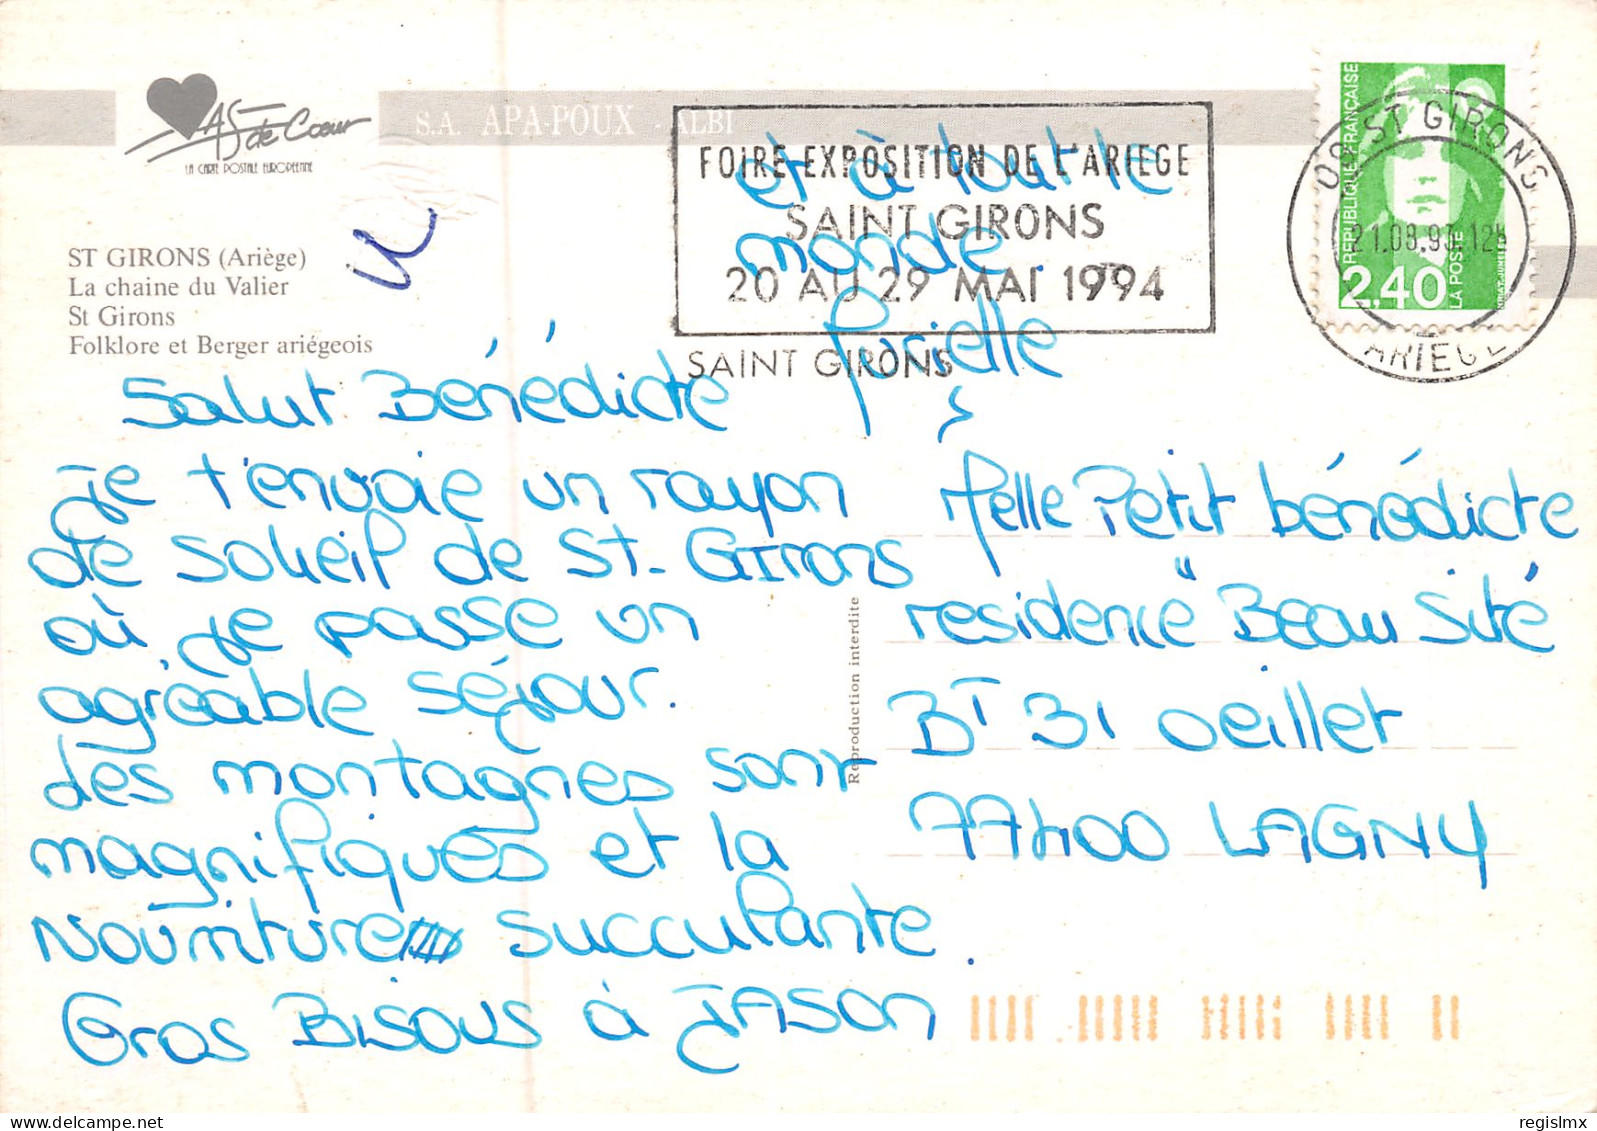 As de Coeur
LA CARTE POSTALE EUROPÉENNE
S.A. APA-POUX - ALBI
ST GIRONS (Ariège)
La chaine du Valier
St Girons
Folklore et Berger ariégeois
FOIRE-EXPOSITION DE L'ARIEGE
SAINT GIRONS
20 AU 29 MAI 1994
SAINT GIRONS
09 ST GIRONS
ARIEGE
REPUBLIQUE FRANÇAISE
2,40
LA POSTE
Salut Bénédicte
Je t'envoie un rayon
de soleil de St-Girons
où je passe un
agréable séjour.
des montagnes sont
magnifiques et la
Nourriture succulante.
Gros Bisous à JASON
et à tout le
monde.
Melle Petit bénédicte
residence "Beau Sité
BT B1 oeillet
77400 LAGNY
Reproduction interdite
regislmx